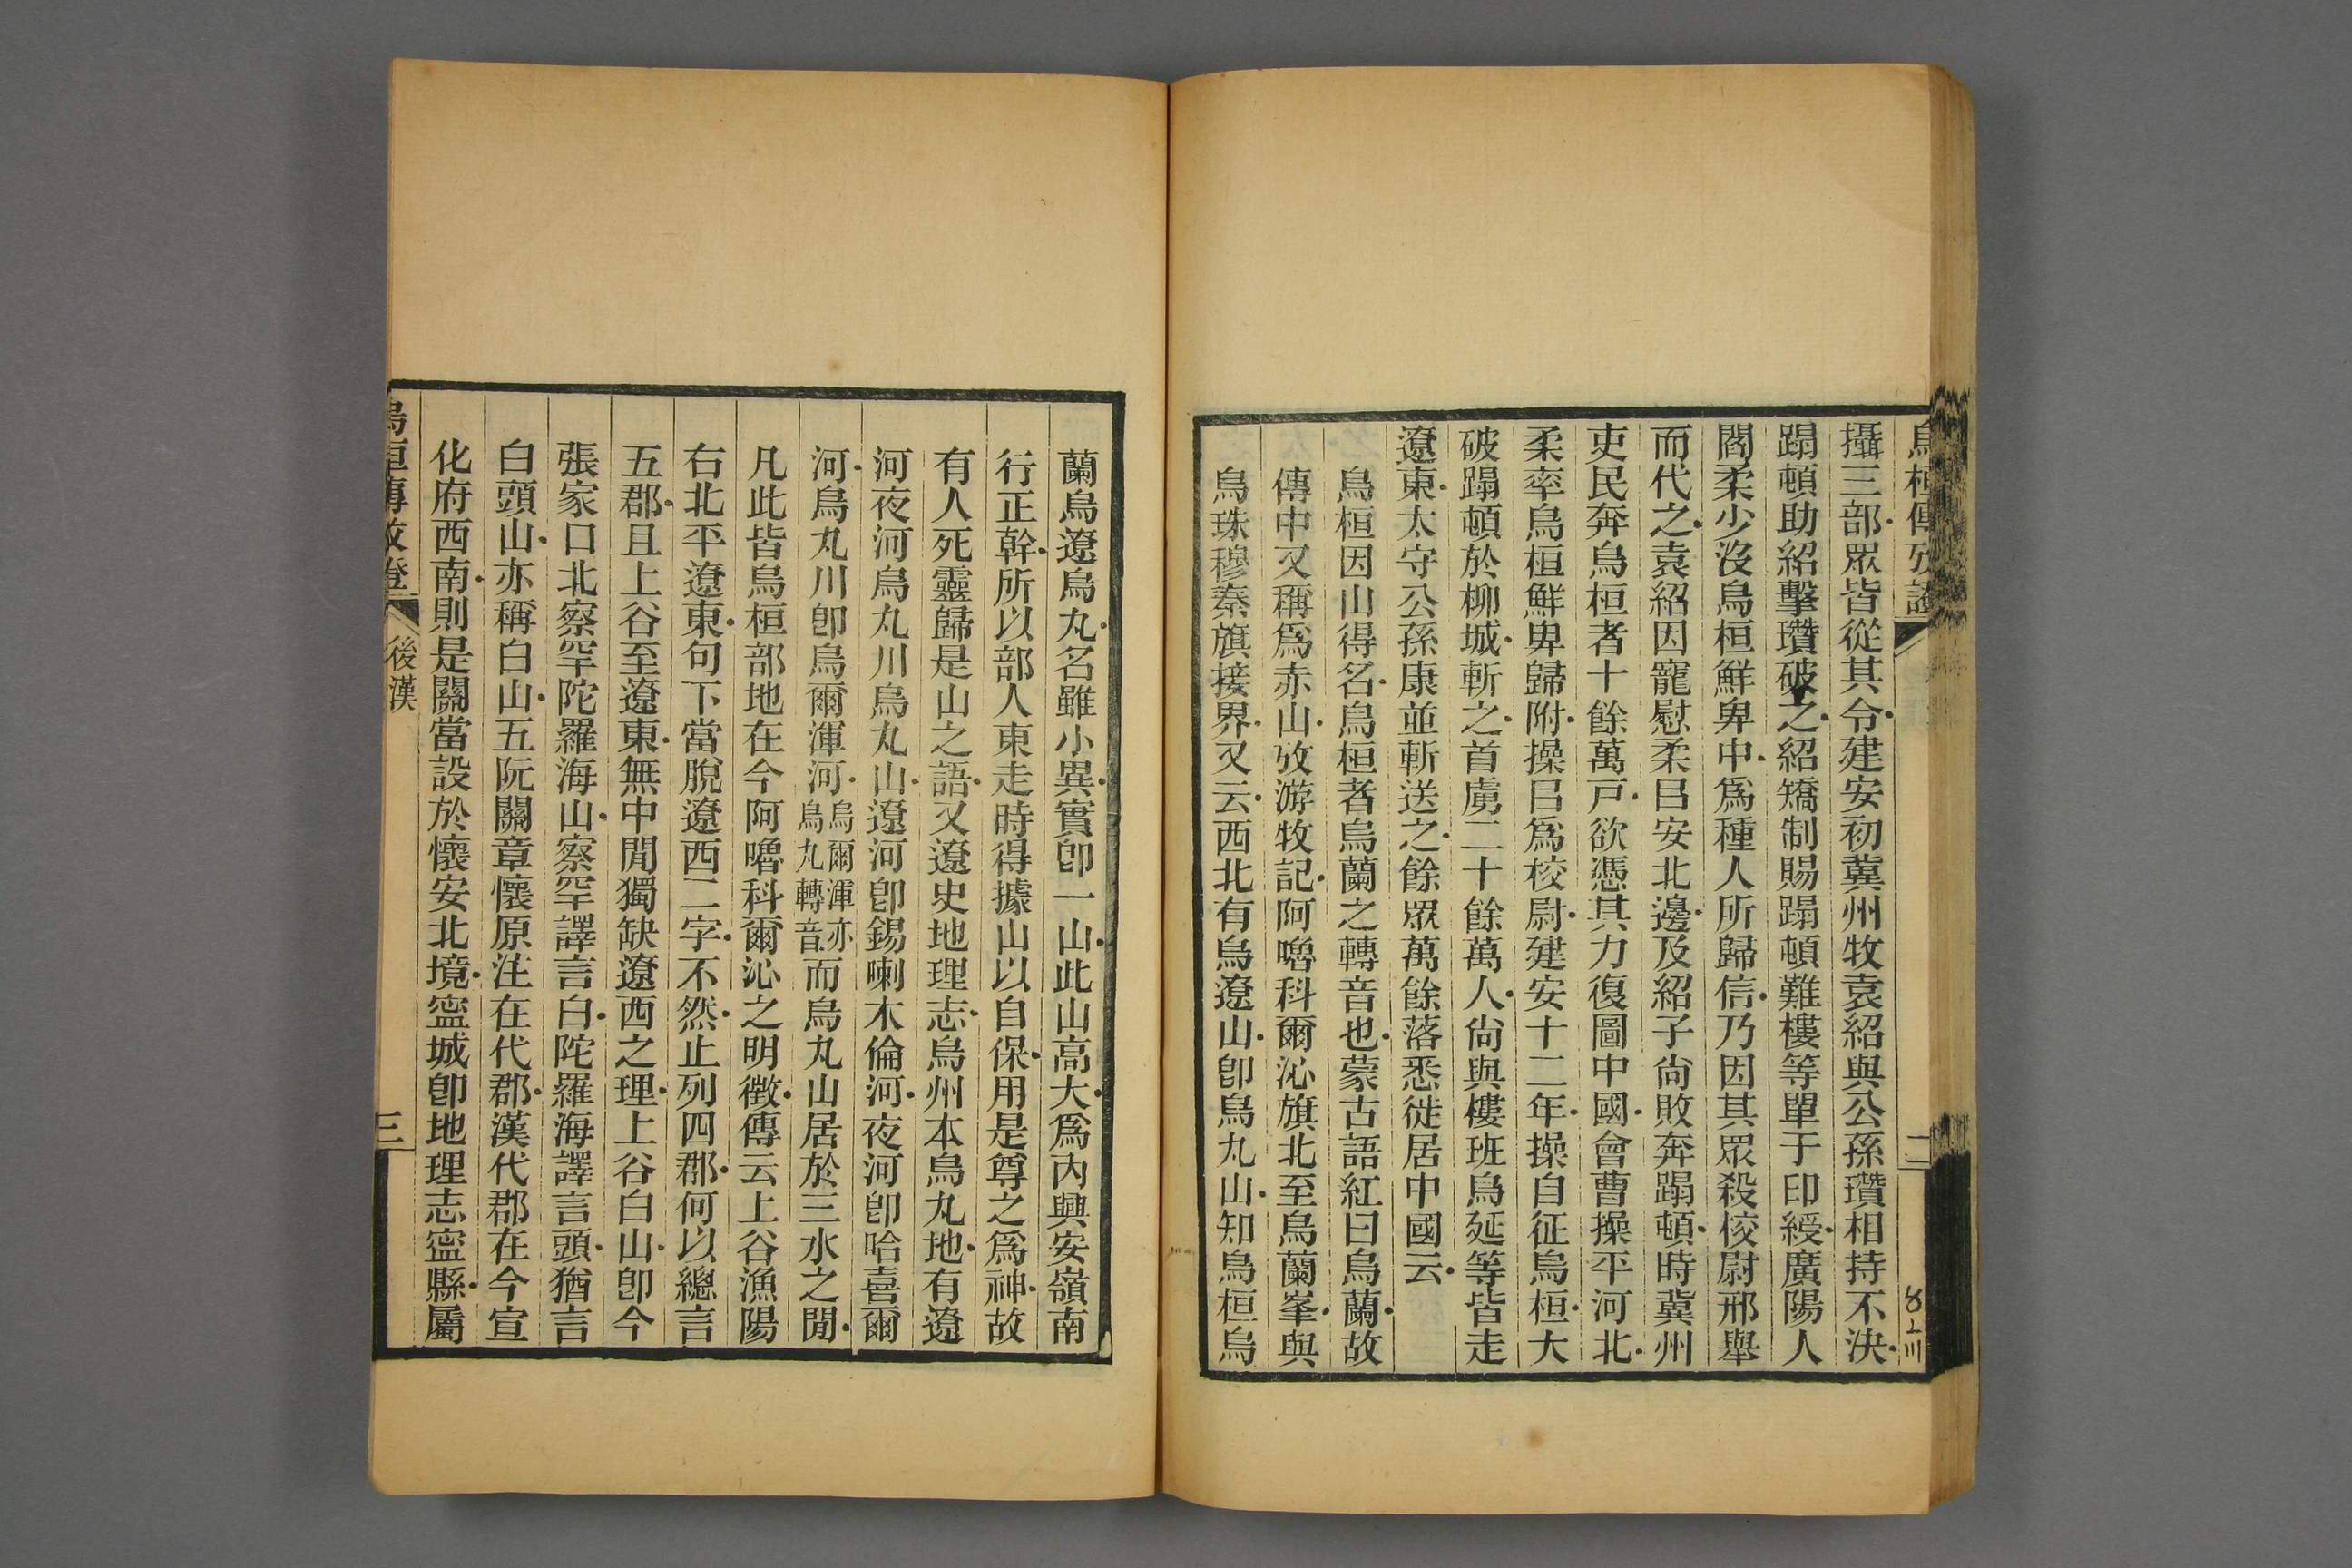 烏桓傳攷證
二
攝三部眾皆從其令建安初冀州牧袁紹與公孫瓚相持不決
蹋頓助紹擊瓚破之紹矯制賜蹋頓難樓等單于印綬廣陽人
閻柔少沒烏桓鮮卑中爲種人所歸信乃因其眾殺校尉邢舉
而代之袁紹因寵慰柔㠯安北邊及紹子尙敗奔蹋頓時冀州
吏民奔烏桓者十餘萬戸欲憑其力復圖中國會曹操平河北
柔率烏桓鮮卑歸附操㠯爲校尉建安十二年操自征烏桓大
破蹋頓於柳城斬之首虜二十餘萬人尙與樓班烏延等皆走
遼東太守公孫康並斬送之餘眾萬餘落悉徙居中國云
烏桓因山得名烏桓者烏蘭之轉音也蒙古語紅曰烏蘭故
傳中又稱爲赤山攷游牧記阿嚕科爾沁旗北至烏蘭峯與
烏珠穆秦旗接界又云西北有烏遼山卽烏丸山知烏桓烏
蘭烏遼烏丸名雖小異實卽一山此山高大爲內興安嶺南
行正幹所以部人東走時得據山以自保用是尊之爲神故
有人死靈歸是山之語又遼史地理志烏州本烏丸地有遼
河夜河烏丸川烏丸山遼河卽錫喇木倫河夜河卽哈喜爾
河烏丸川卽烏爾渾河烏爾渾亦烏丸轉音而烏丸山居於三水之閒
凡此皆烏桓部地在今阿嚕科爾沁之明徵傳云上谷漁陽
右北平遼東句下當脫遼西二字不然止列四郡何以總言
五郡且上谷至遼東無中閒獨缺遼西之理上谷白山卽今
張家口北察罕陀羅海山察罕譯言白陀羅海譯言頭猶言
白頭山亦稱白山五阮關章懷原注在代郡漢代郡在今宣
化府西南則是關當設於懷安北境寍城卽地理志寍縣屬
烏桓傳攷證
後漢
三